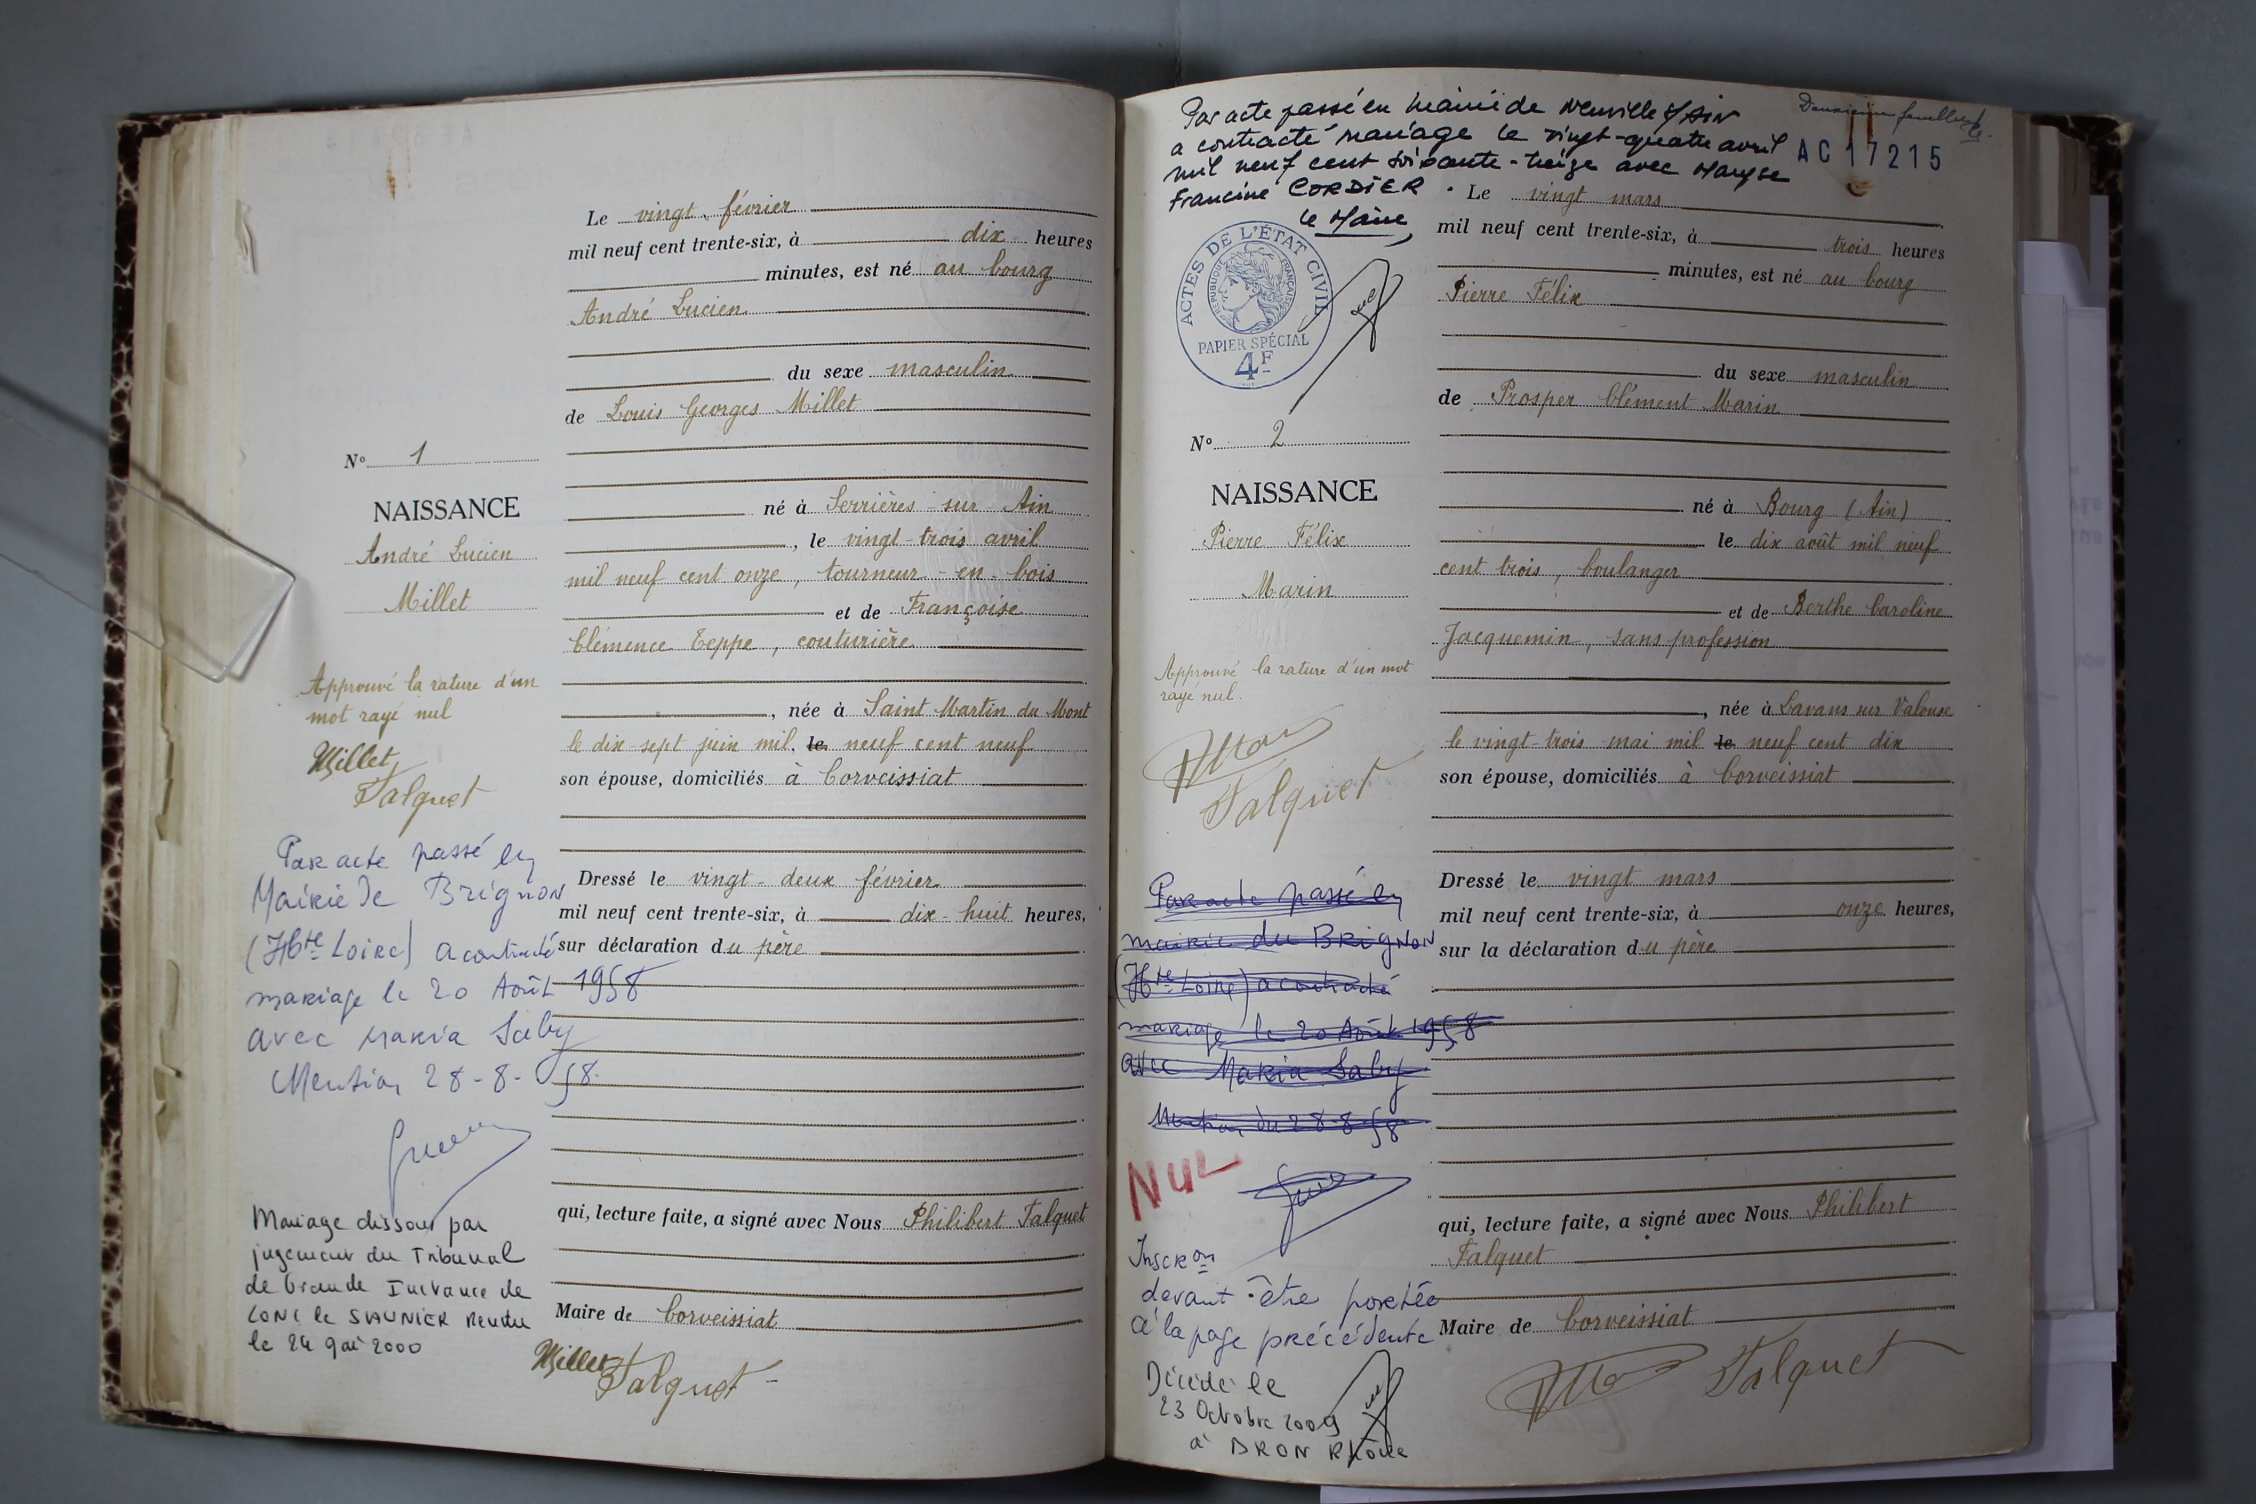 Le vingt février
mil neuf cent trente-six, à dix heures
minutes, est né au bourg
André Lucien
du sexe masculin
de Louis Georges Millet
N° 1
NAISSANCE
André Lucien
Millet
né à Serrières sur Ain
, le vingt-trois avril
mil neuf cent onze, tourneur-en-bois
et de Françoise
Clémence Teppe, couturière
Approuvé la rature d'un
mot rayé nul
Millet
Falquet
, née à Saint Martin du Mont
le dix-sept juin mil le neuf cent neuf
son épouse, domiciliés à Corveissiat
Par acte passé en
Mairie de Brignon
(Hte Loire) a contracté
mariage le 20 Août 1958
avec Maria Saby
Mention 28-8-58
Dressé le vingt-deux février
mil neuf cent trente-six, à dix-huit heures,
sur déclaration du père
Mariage dissous par
jugement du Tribunal
de Grande Instance de
LONS le SAUNIER rendu
le 24 2000
qui, lecture faite, a signé avec Nous Philibert Falquet
Maire de Corveissiat
Millet Falquet
Par acte passé en Mairie de Neuville s/Ain
a contracté mariage le vingt-quatre avril
mil neuf cent soixante-treize avec Maryse
Francine CORDIER.
le Maire,
Deuxième feuillet
AC 17215
ACTES DE L'ÉTAT CIVIL
RÉPUBLIQUE FRANÇAISE
PAPIER SPÉCIAL
4F
Le vingt mars
mil neuf cent trente-six, à trois heures
minutes, est né au bourg
Pierre Félix
du sexe masculin
de Prosper Clément Marin
N° 2
NAISSANCE
Pierre Félix
Marin
né à Bourg (Ain)
le dix août mil neuf
cent trois, boulanger
et de Berthe Caroline
Jacquemin, sans profession
Approuvé la rature d'un mot
raye nul.
Falquet
, née à Lavans sur Valouse
le vingt-trois mai mil le neuf cent dix
son épouse, domiciliés à Corveissiat
Par acte passé en
mairie du BRIGNON
(Hte Loire) a contracté
mariage le 20 Août 1958
avec Maria Saby
Mention du 28-8-58
NUL
Inscron
devant-être portée
à la page précédente
Décédé le
23 Octobre 2009
à BRON Rhône
Dressé le vingt mars
mil neuf cent trente-six, à onze heures,
sur la déclaration du père
qui, lecture faite, a signé avec Nous Philibert
Falquet
Maire de Corveissiat
Falquet